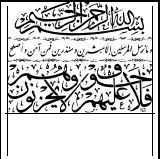 بسم الله الرحمن الرحيم
وما نرسل المرسلين إلا مبشرين ومنذرين فمن آمن وأصلح
فلا خوف عليهم ولا هم يحزنون